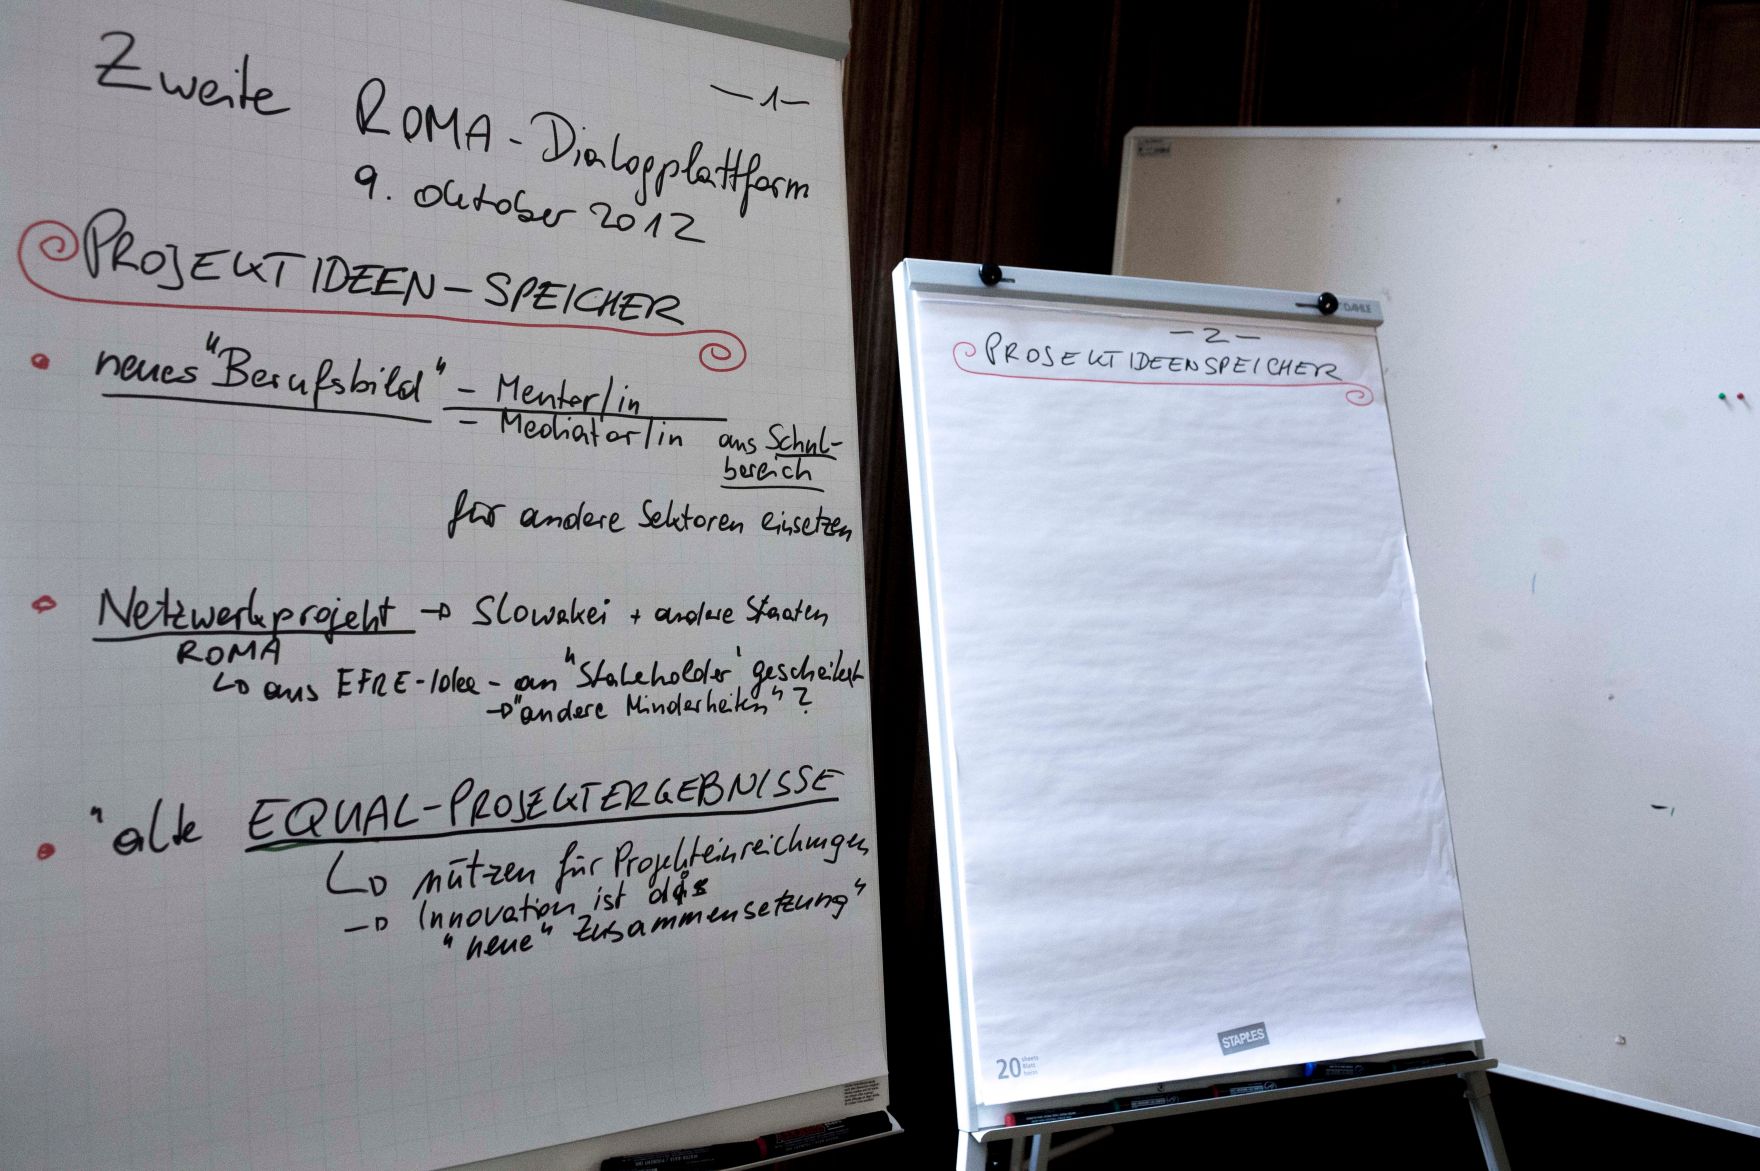 — 1 —
Zweite ROMA-Dialogplattform
9. Oktober 2012
PROJEKTIDEEN-SPEICHER
neues "Berufsbild" - Mentor/in
- Mediator/in aus Schul-
bereich
für andere Sektoren einsetzen
Netzwerkprojekt → Slowakei + andere Staaten
ROMA
↳ aus EFRE-Idee - an "Stakeholder' gescheitert
→ "andere Minderheiten" ?
"alte EQUAL-PROJEKTERGEBNISSE
↳ nützen für Projekteinreichungen
→ Innovation ist das
"neue" Zusammensetzung"
DAHLE
— 2 —
PROJEKTIDEENSPEICHER
STAPLES
20 sheets
Blatt